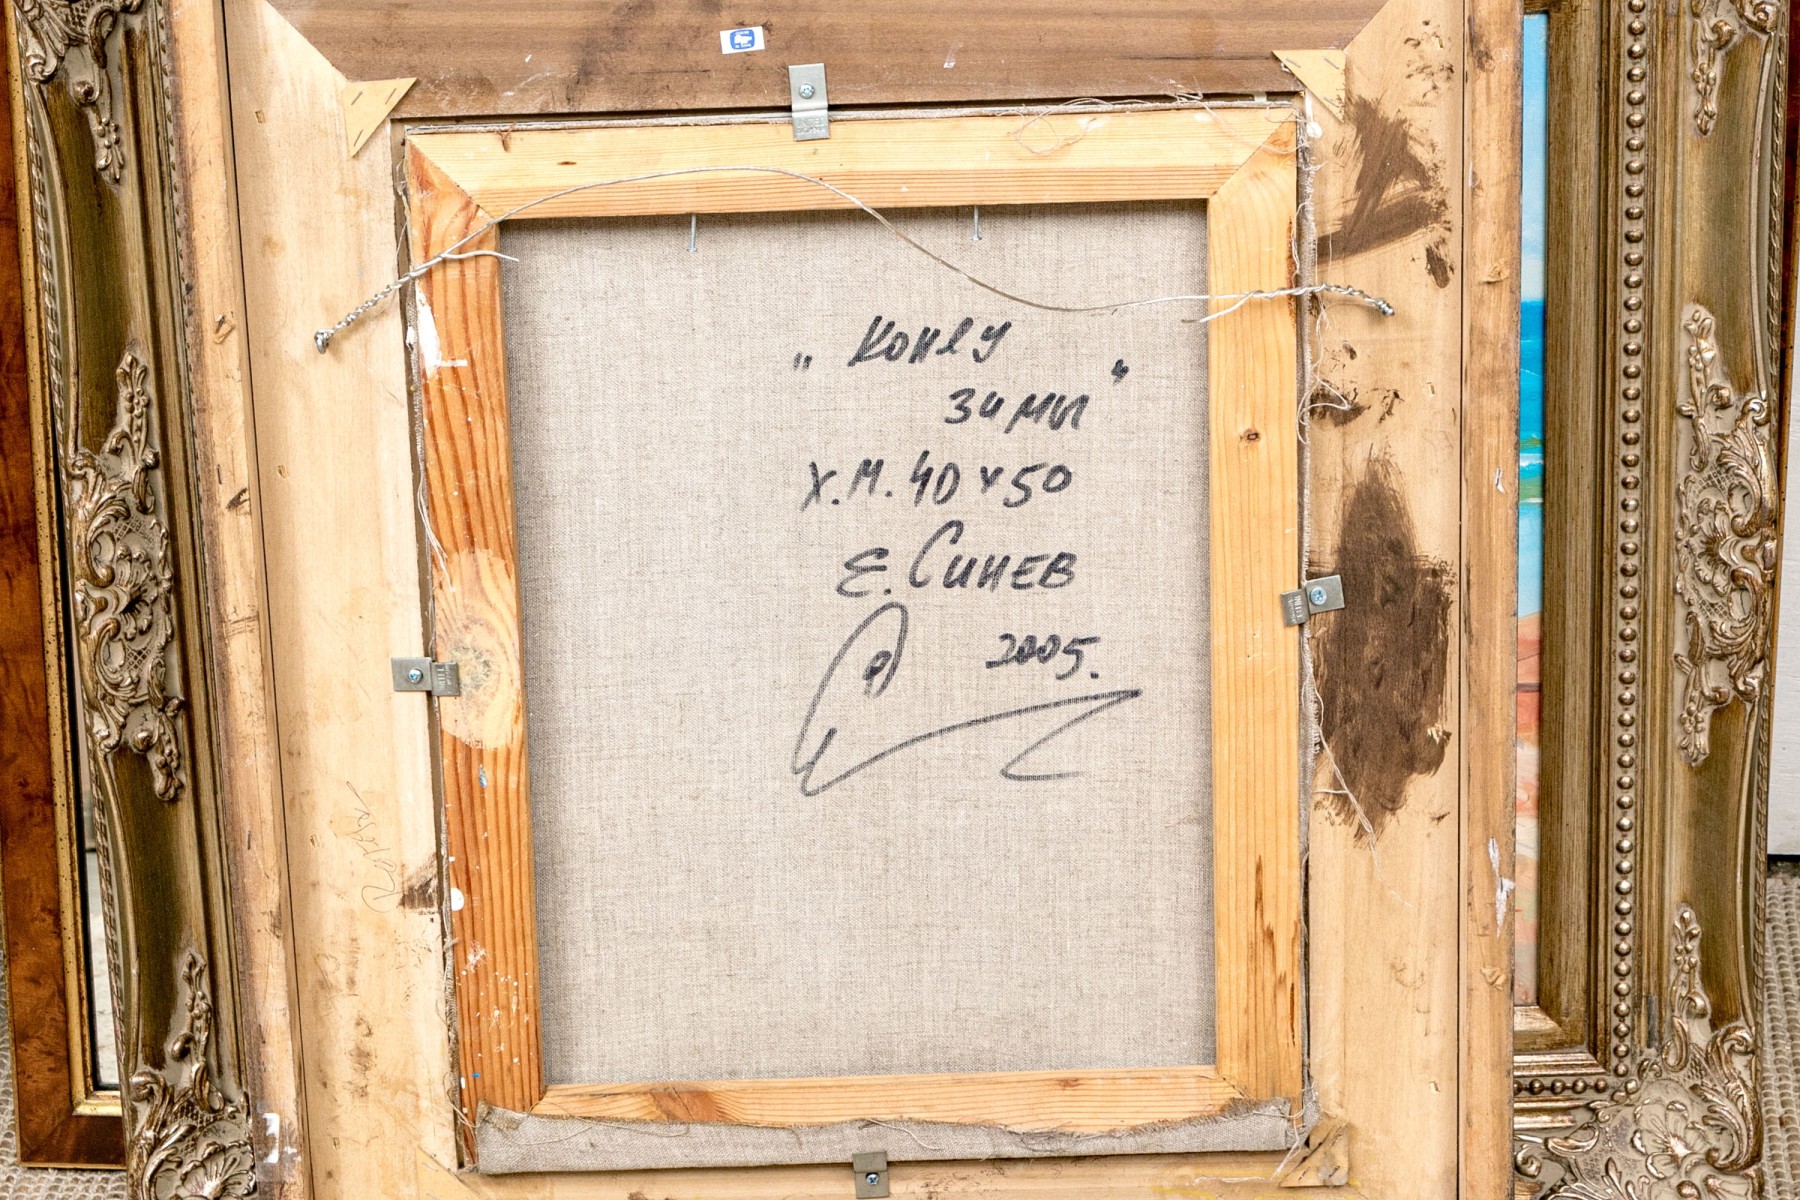 „Концу
зимы"
Х.М. 40х50
Е. Синев
2005.